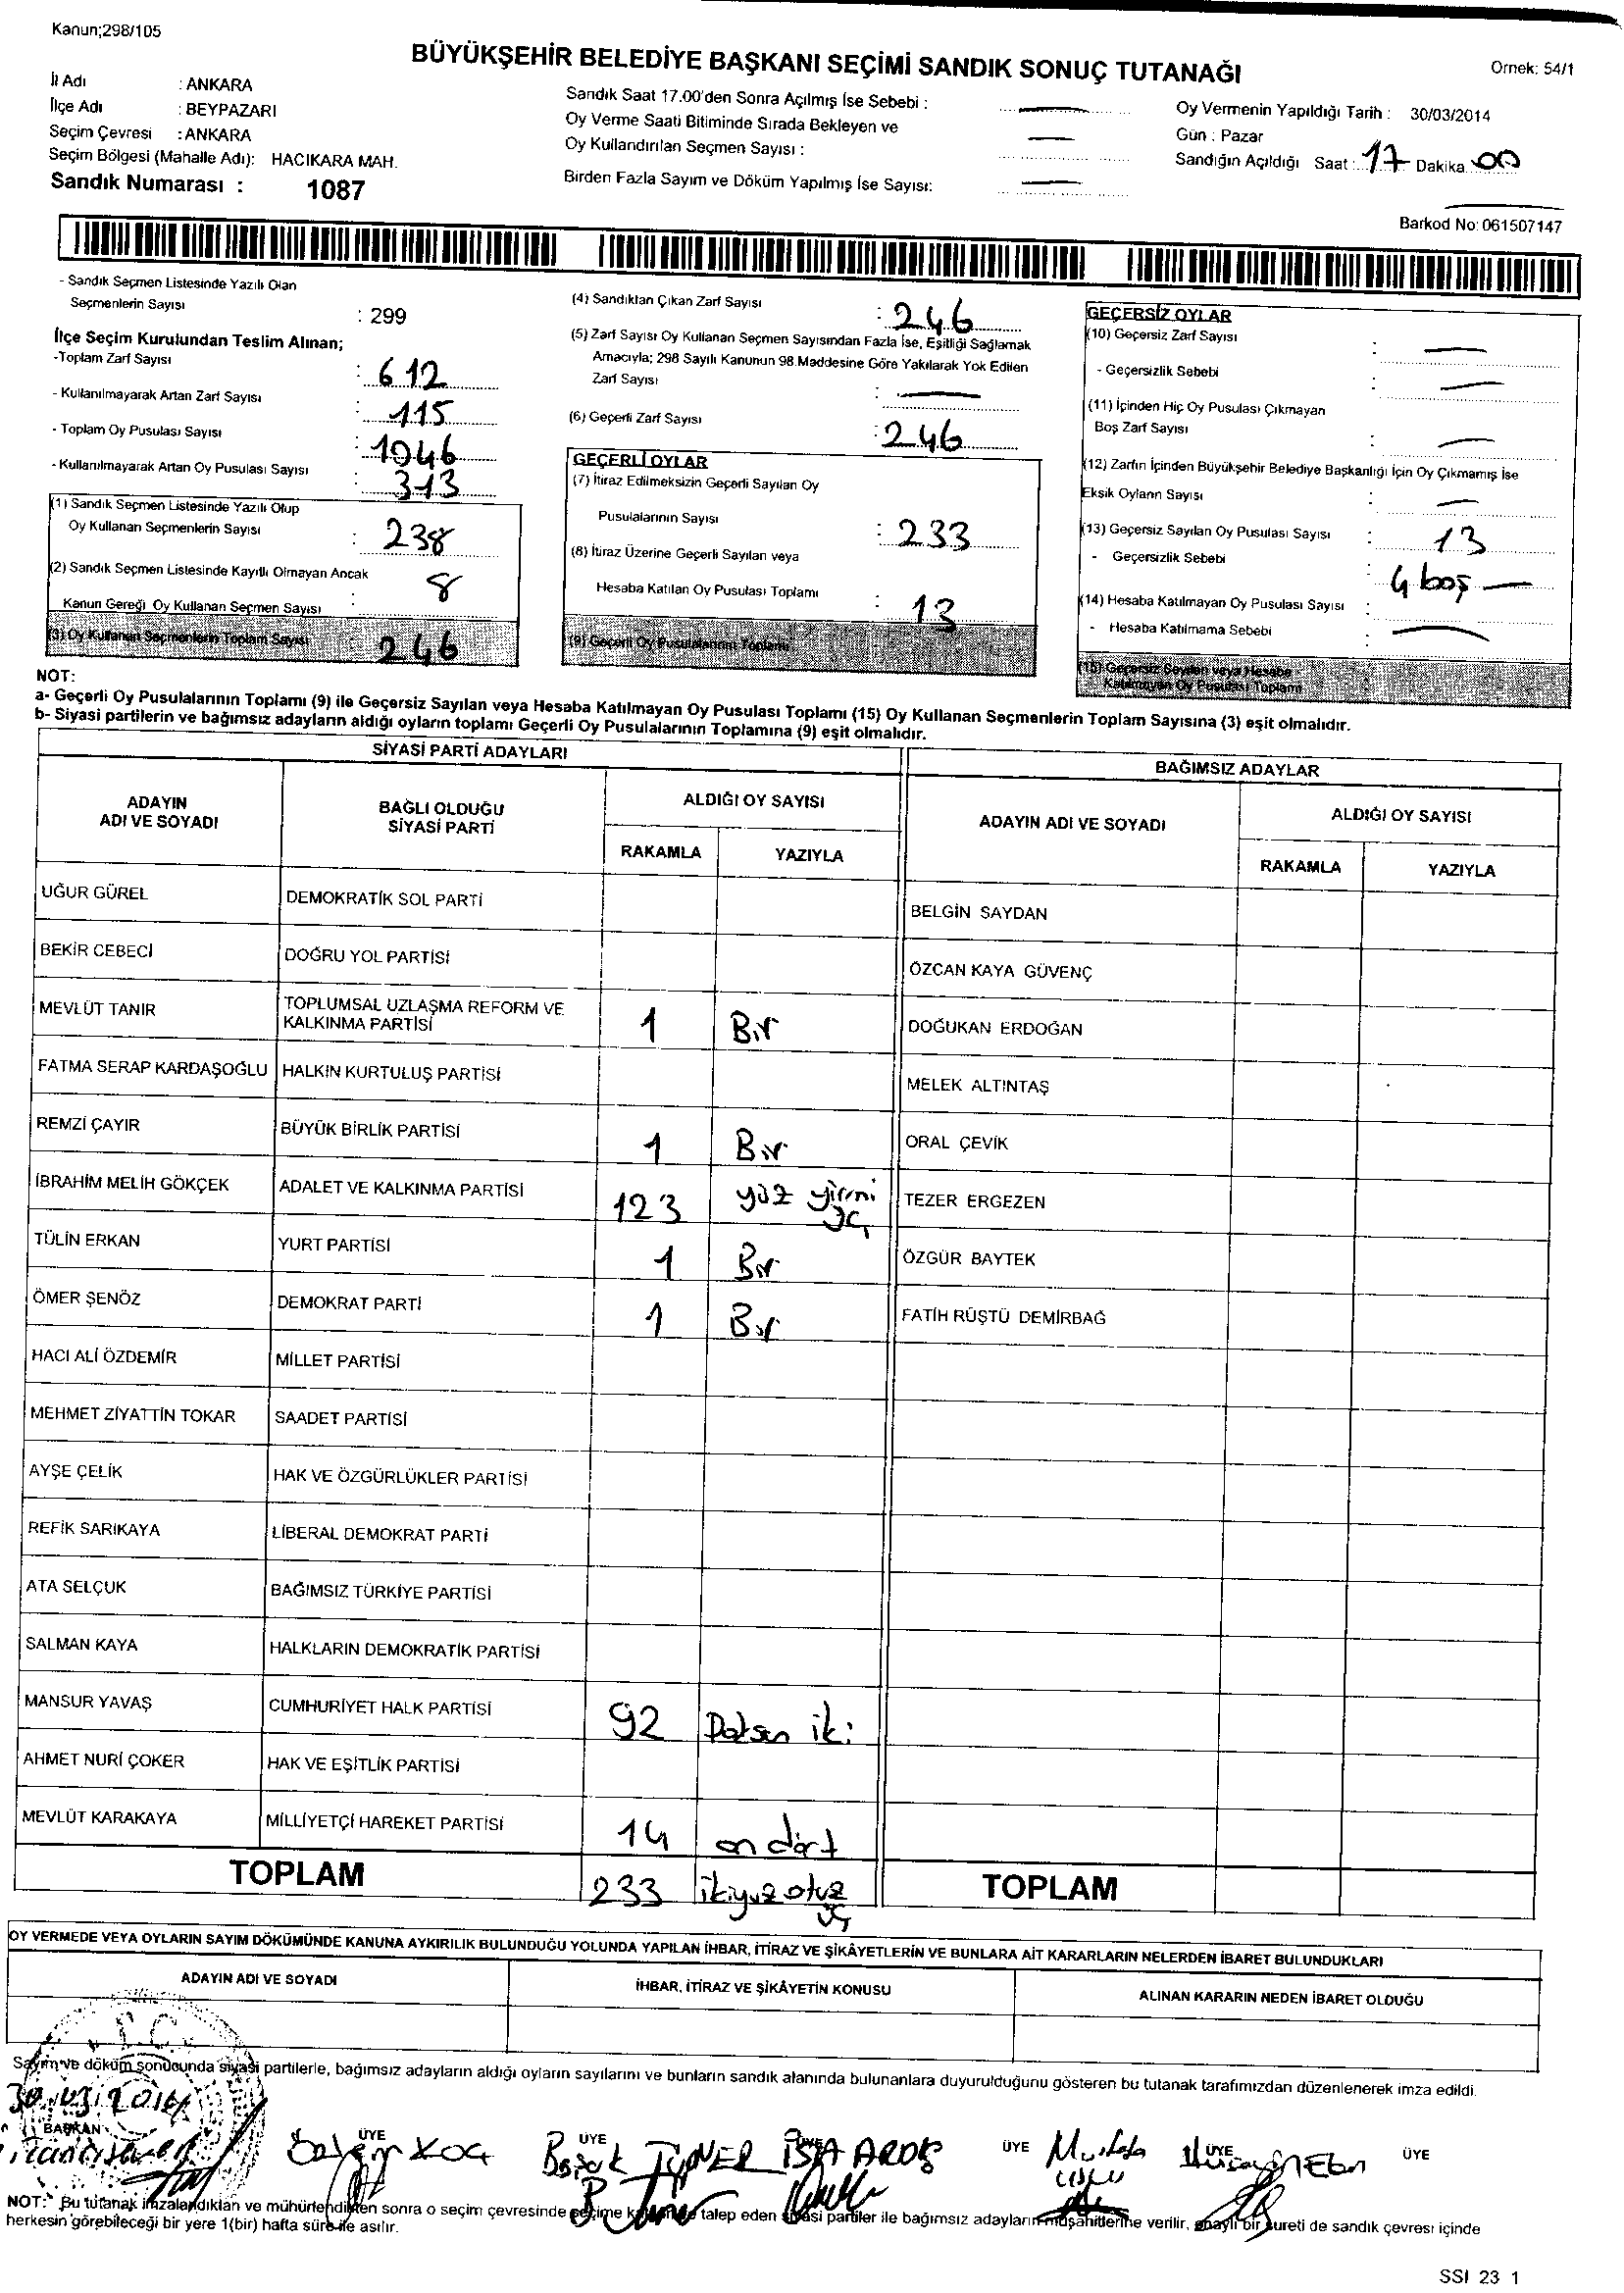 Kanun;298/105
BÜYÜKŞEHİR BELEDİYE BAŞKANI SEÇİMİ SANDIK SONUÇ TUTANAĞI
Ornek: 54/1
İl Adı : ANKARA
İlçe Adı : BEYPAZARI
Seçim Çevresi : ANKARA
Seçim Bölgesi (Mahalle Adı): HACIKARA MAH.
Sandık Numarası : 1087
Sandık Saat 17.00'den Sonra Açılmış İse Sebebi : —
Oy Verme Saati Bitiminde Sırada Bekleyen ve
Oy Kullandırılan Seçmen Sayısı : —
Birden Fazla Sayım ve Döküm Yapılmış İse Sayısı: —
Oy Vermenin Yapıldığı Tarih : 30/03/2014
Gün : Pazar
Sandığın Açıldığı Saat : 17 Dakika 00
Barkod No: 061507147
- Sandık Seçmen Listesinde Yazılı Olan
Seçmenlerin Sayısı : 299
İlçe Seçim Kurulundan Teslim Alınan;
-Toplam Zarf Sayısı : 612
- Kullanılmayarak Artan Zarf Sayısı : 115
- Toplam Oy Pusulası Sayısı : 1046
- Kullanılmayarak Artan Oy Pusulası Sayısı : 313
(1) Sandık Seçmen Listesinde Yazılı Olup
Oy Kullanan Seçmenlerin Sayısı : 238
(2) Sandık Seçmen Listesinde Kayıtlı Olmayan Ancak
Kanun Gereği Oy Kullanan Seçmen Sayısı : 8
(3) Oy Kullanan Seçmenlerin Toplam Sayısı : 246
(4) Sandıktan Çıkan Zarf Sayısı : 246
(5) Zarf Sayısı Oy Kullanan Seçmen Sayısından Fazla İse, Eşitliği Sağlamak
Amacıyla; 298 Sayılı Kanunun 98.Maddesine Göre Yakılarak Yok Edilen
Zarf Sayısı : —
(6) Geçerli Zarf Sayısı : 246
GEÇERLİ OYLAR
(7) İtiraz Edilmeksizin Geçerli Sayılan Oy
Pusulalarının Sayısı : 233
(8) İtiraz Üzerine Geçerli Sayılan veya
Hesaba Katılan Oy Pusulası Toplamı : 13
(9) Geçerli Oy Pusulalarının Toplamı
GEÇERSİZ OYLAR
(10) Geçersiz Zarf Sayısı : —
- Geçersizlik Sebebi : —
(11) İçinden Hiç Oy Pusulası Çıkmayan
Boş Zarf Sayısı : —
(12) Zarfın İçinden Büyükşehir Belediye Başkanlığı İçin Oy Çıkmamış İse
Eksik Oyların Sayısı : —
(13) Geçersiz Sayılan Oy Pusulası Sayısı : 13
- Geçersizlik Sebebi : 4 boş —
(14) Hesaba Katılmayan Oy Pusulası Sayısı :
- Hesaba Katılmama Sebebi : —
(15) Geçersiz Sayılan veya Hesaba
Katılmayan Oy Pusulası Toplamı
NOT:
a- Geçerli Oy Pusulalarının Toplamı (9) ile Geçersiz Sayılan veya Hesaba Katılmayan Oy Pusulası Toplamı (15) Oy Kullanan Seçmenlerin Toplam Sayısına (3) eşit olmalıdır.
b- Siyasi partilerin ve bağımsız adayların aldığı oyların toplamı Geçerli Oy Pusulalarının Toplamına (9) eşit olmalıdır.
SİYASİ PARTİ ADAYLARI
BAĞIMSIZ ADAYLAR
ADAYIN ADI VE SOYADI
BAĞLI OLDUĞU SİYASİ PARTİ
ALDIĞI OY SAYISI
RAKAMLA YAZIYLA
ADAYIN ADI VE SOYADI
ALDIĞI OY SAYISI
RAKAMLA YAZIYLA
UĞUR GÜREL DEMOKRATİK SOL PARTİ
BELGİN SAYDAN
BEKİR CEBECİ DOĞRU YOL PARTİSİ
ÖZCAN KAYA GÜVENÇ
MEVLÜT TANIR TOPLUMSAL UZLAŞMA REFORM VE KALKINMA PARTİSİ 1 Bir
DOĞUKAN ERDOĞAN
FATMA SERAP KARDAŞOĞLU HALKIN KURTULUŞ PARTİSİ
MELEK ALTINTAŞ
REMZİ ÇAYIR BÜYÜK BİRLİK PARTİSİ 1 Bir
ORAL ÇEVİK
İBRAHİM MELİH GÖKÇEK ADALET VE KALKINMA PARTİSİ 123 yüz yirmi üç
TEZER ERGEZEN
TÜLİN ERKAN YURT PARTİSİ 1 Bir
ÖZGÜR BAYTEK
ÖMER ŞENÖZ DEMOKRAT PARTİ 1 Bir
FATİH RÜŞTÜ DEMİRBAĞ
HACI ALİ ÖZDEMİR MİLLET PARTİSİ
MEHMET ZİYATTİN TOKAR SAADET PARTİSİ
AYŞE ÇELİK HAK VE ÖZGÜRLÜKLER PARTİSİ
REFİK SARIKAYA LİBERAL DEMOKRAT PARTİ
ATA SELÇUK BAĞIMSIZ TÜRKİYE PARTİSİ
SALMAN KAYA HALKLARIN DEMOKRATİK PARTİSİ
MANSUR YAVAŞ CUMHURİYET HALK PARTİSİ 92 Doksan iki
AHMET NURİ ÇOKER HAK VE EŞİTLİK PARTİSİ
MEVLÜT KARAKAYA MİLLİYETÇİ HAREKET PARTİSİ 14 on dört
TOPLAM 233 ikiyüz otuz üç
TOPLAM
OY VERMEDE VEYA OYLARIN SAYIM DÖKÜMÜNDE KANUNA AYKIRILIK BULUNDUĞU YOLUNDA YAPILAN İHBAR, İTİRAZ VE ŞİKÂYETLERİN VE BUNLARA AİT KARARLARIN NELERDEN İBARET BULUNDUKLARI
ADAYIN ADI VE SOYADI
İHBAR, İTİRAZ VE ŞİKÂYETİN KONUSU
ALINAN KARARIN NEDEN İBARET OLDUĞU
Sayım ve döküm sonucunda siyasi partilerle, bağımsız adayların aldığı oyların sayılarını ve bunların sandık alanında bulunanlara duyurulduğunu gösteren bu tutanak tarafımızdan düzenlenerek imza edildi.
30.03.2014
T.C.
BAŞKAN ÜYE ÜYE ÜYE ÜYE ÜYE ÜYE
KOÇ TÜNER İSA Mustafa Hüseyin
NOT: Bu tutanak imzalandıktan ve mühürlendikten sonra o seçim çevresinde seçime katılan ve talep eden siyasi partiler ile bağımsız adayların müşahitlerine verilir, onaylı bir sureti de sandık çevresi içinde
herkesin görebileceği bir yere 1(bir) hafta süre ile asılır.
SSI 23 1